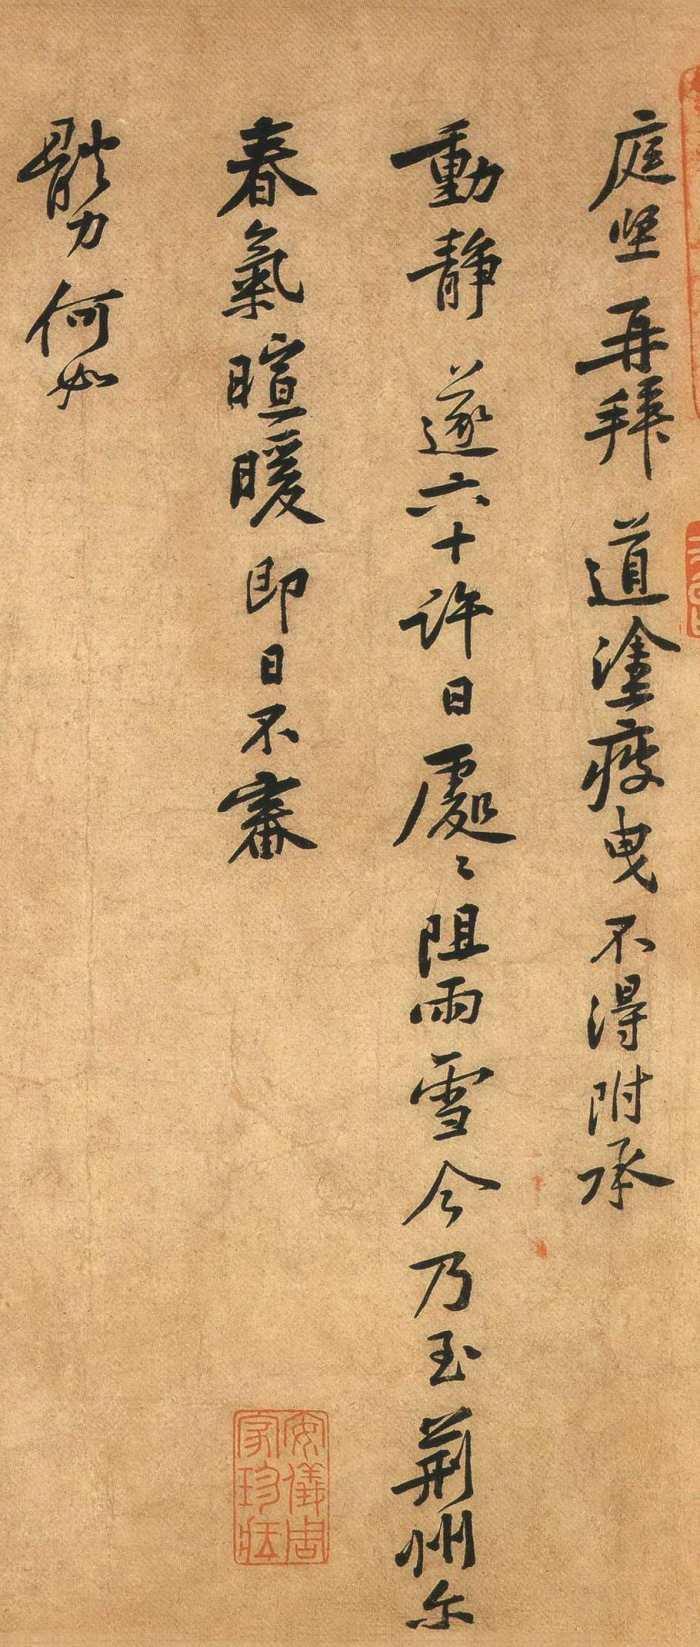 庭堅再拜道塗疲曳不得附承
動靜遂六十許日處〻阻雨雪今乃至荊州尔
春氣暄暖即日不審
體力何如
安儀周家珍藏